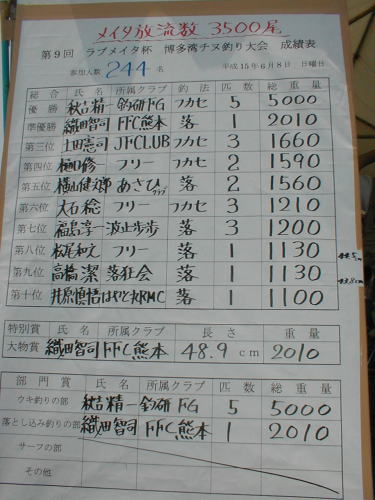 メイタ放流数 3500尾
第9回 ラブメイタ杯 博多湾チヌ釣り大会 成績表
参加人数 244名 平成15年6月8日 日曜日
総合 氏名 所属クラブ 釣法 匹数 総重量
優勝 秋吉精一 釣研FG フカセ 5 5000
準優勝 織田智司 FFC熊本 落 1 2010
第三位 土田憲司 JFCLUB フカセ 3 1660
第四位 樋口修一 フリー フカセ 2 1590
第五位 横山健太郎 あさひクラブ 落 2 1560
第六位 大石稔 フリー フカセ 3 1210
第七位 福島淳一 波止歩歩 落 3 1200
第八位 松尾和文 フリー 落 1 1130
第九位 高橋潔 落狂会 落 1 1130
第十位 井原慎悟 はやと丸RMC 落 1 1100
特別賞 氏名 所属クラブ 長さ 重量
大物賞 織田智司 FFC熊本 48.9cm 2010
部門賞 氏名 所属クラブ 匹数 総重量
ウキ釣りの部 秋吉精一 釣研FG 5 5000
落とし込み釣りの部 織田智司 FFC熊本 1 2010
サーフの部
その他